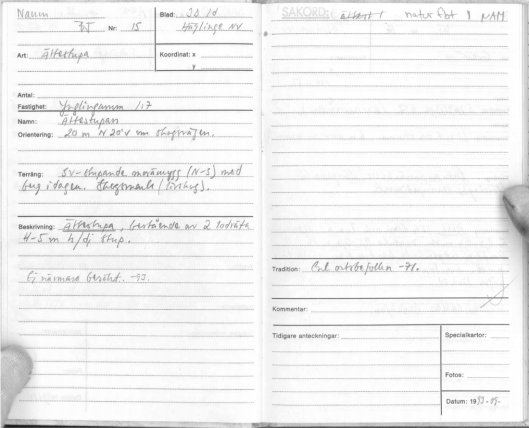 Namn
Nr: 15
Art: Ättestupa
Blad: 3D 1d
Höglinge NV
Koordinat: x
y
Antal:
Fastighet: 1:7
Namn: Ättestupan
Orientering: 20 m N 20°V om skogsvägen.
Terräng: SV-stupande moränrygg (N-S) med
berg i dagen. Skogsmark
Beskrivning: Ättestupa, bestående av 2 lodräta
4-5 m h/dj stup.
Ej närmare besikt. -93.
SAKORD: ättest / natur föt 1 NAM
Tradition: Enl ortsbefolkn -71.
Kommentar:
Tidigare anteckningar:
Specialkartor:
Fotos:
Datum: 1993-09-